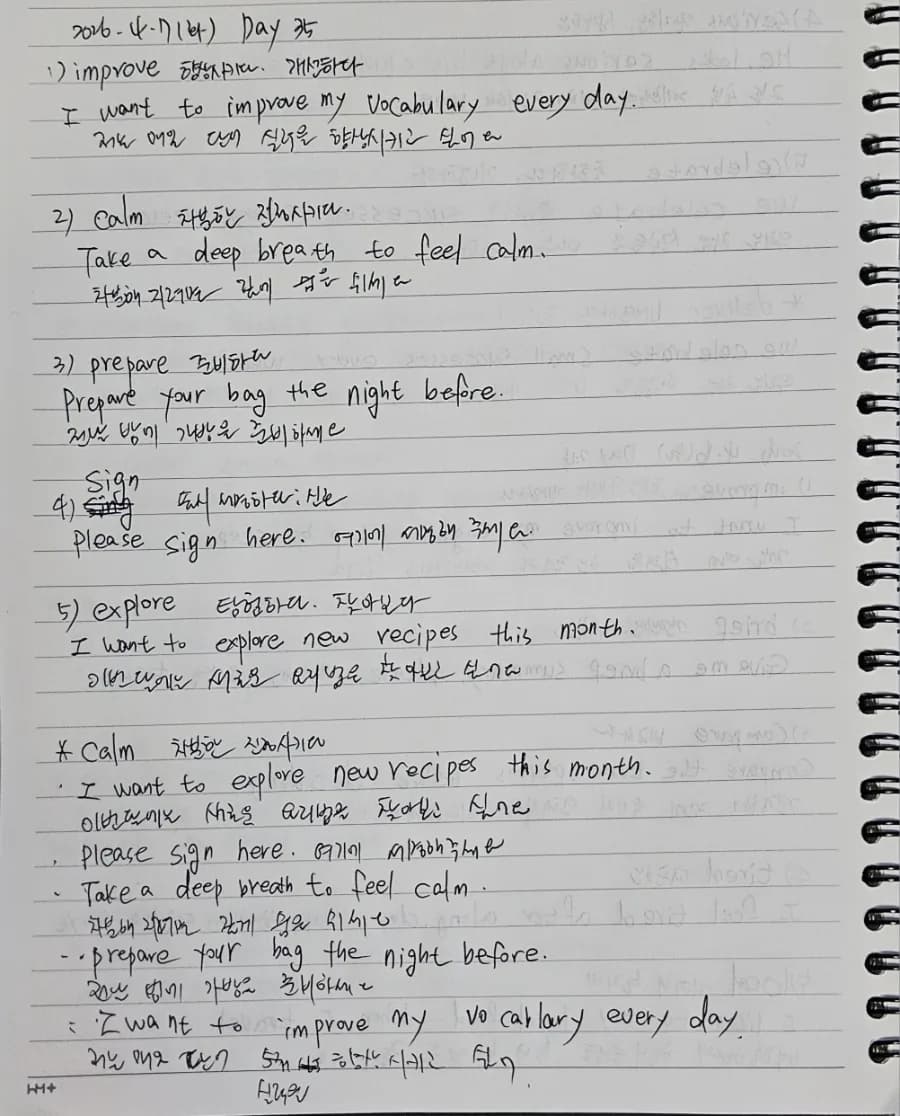 2026-4-7(화) Day 35
1) improve 향상시키다. 개선하다
I want to improve my vocabulary every day.
저는 매일 단어 실력을 향상시키고 싶어요
2) calm 차분한 진정시키다.
Take a deep breath to feel calm.
차분해 지려면 깊게 숨을 쉬세요
3) prepare 준비하다
Prepare your bag the night before.
전날 밤에 가방을 준비하세요
Sign
4) 표시 서명하다:신호
please sign here. 여기에 서명해 주세요.
5) explore 탐험하다. 찾아보다
I want to explore new recipes this month.
이번달에는 새로운 요리법을 찾아보고 싶어요
* calm 차분한 진정시키다
· I want to explore new recipes this month.
이번달에는 새로운 요리법을 찾아보고 싶어요
. please sign here. 여기에 서명해주세요
- Take a deep breath to feel calm.
차분해 지려면 깊게 숨을 쉬세요
-·prepare your bag the night before.
전날 밤에 가방을 준비하세요
: I want to improve my vocablary every day.
저는 매일 단어 향상시키고 싶어
실력을